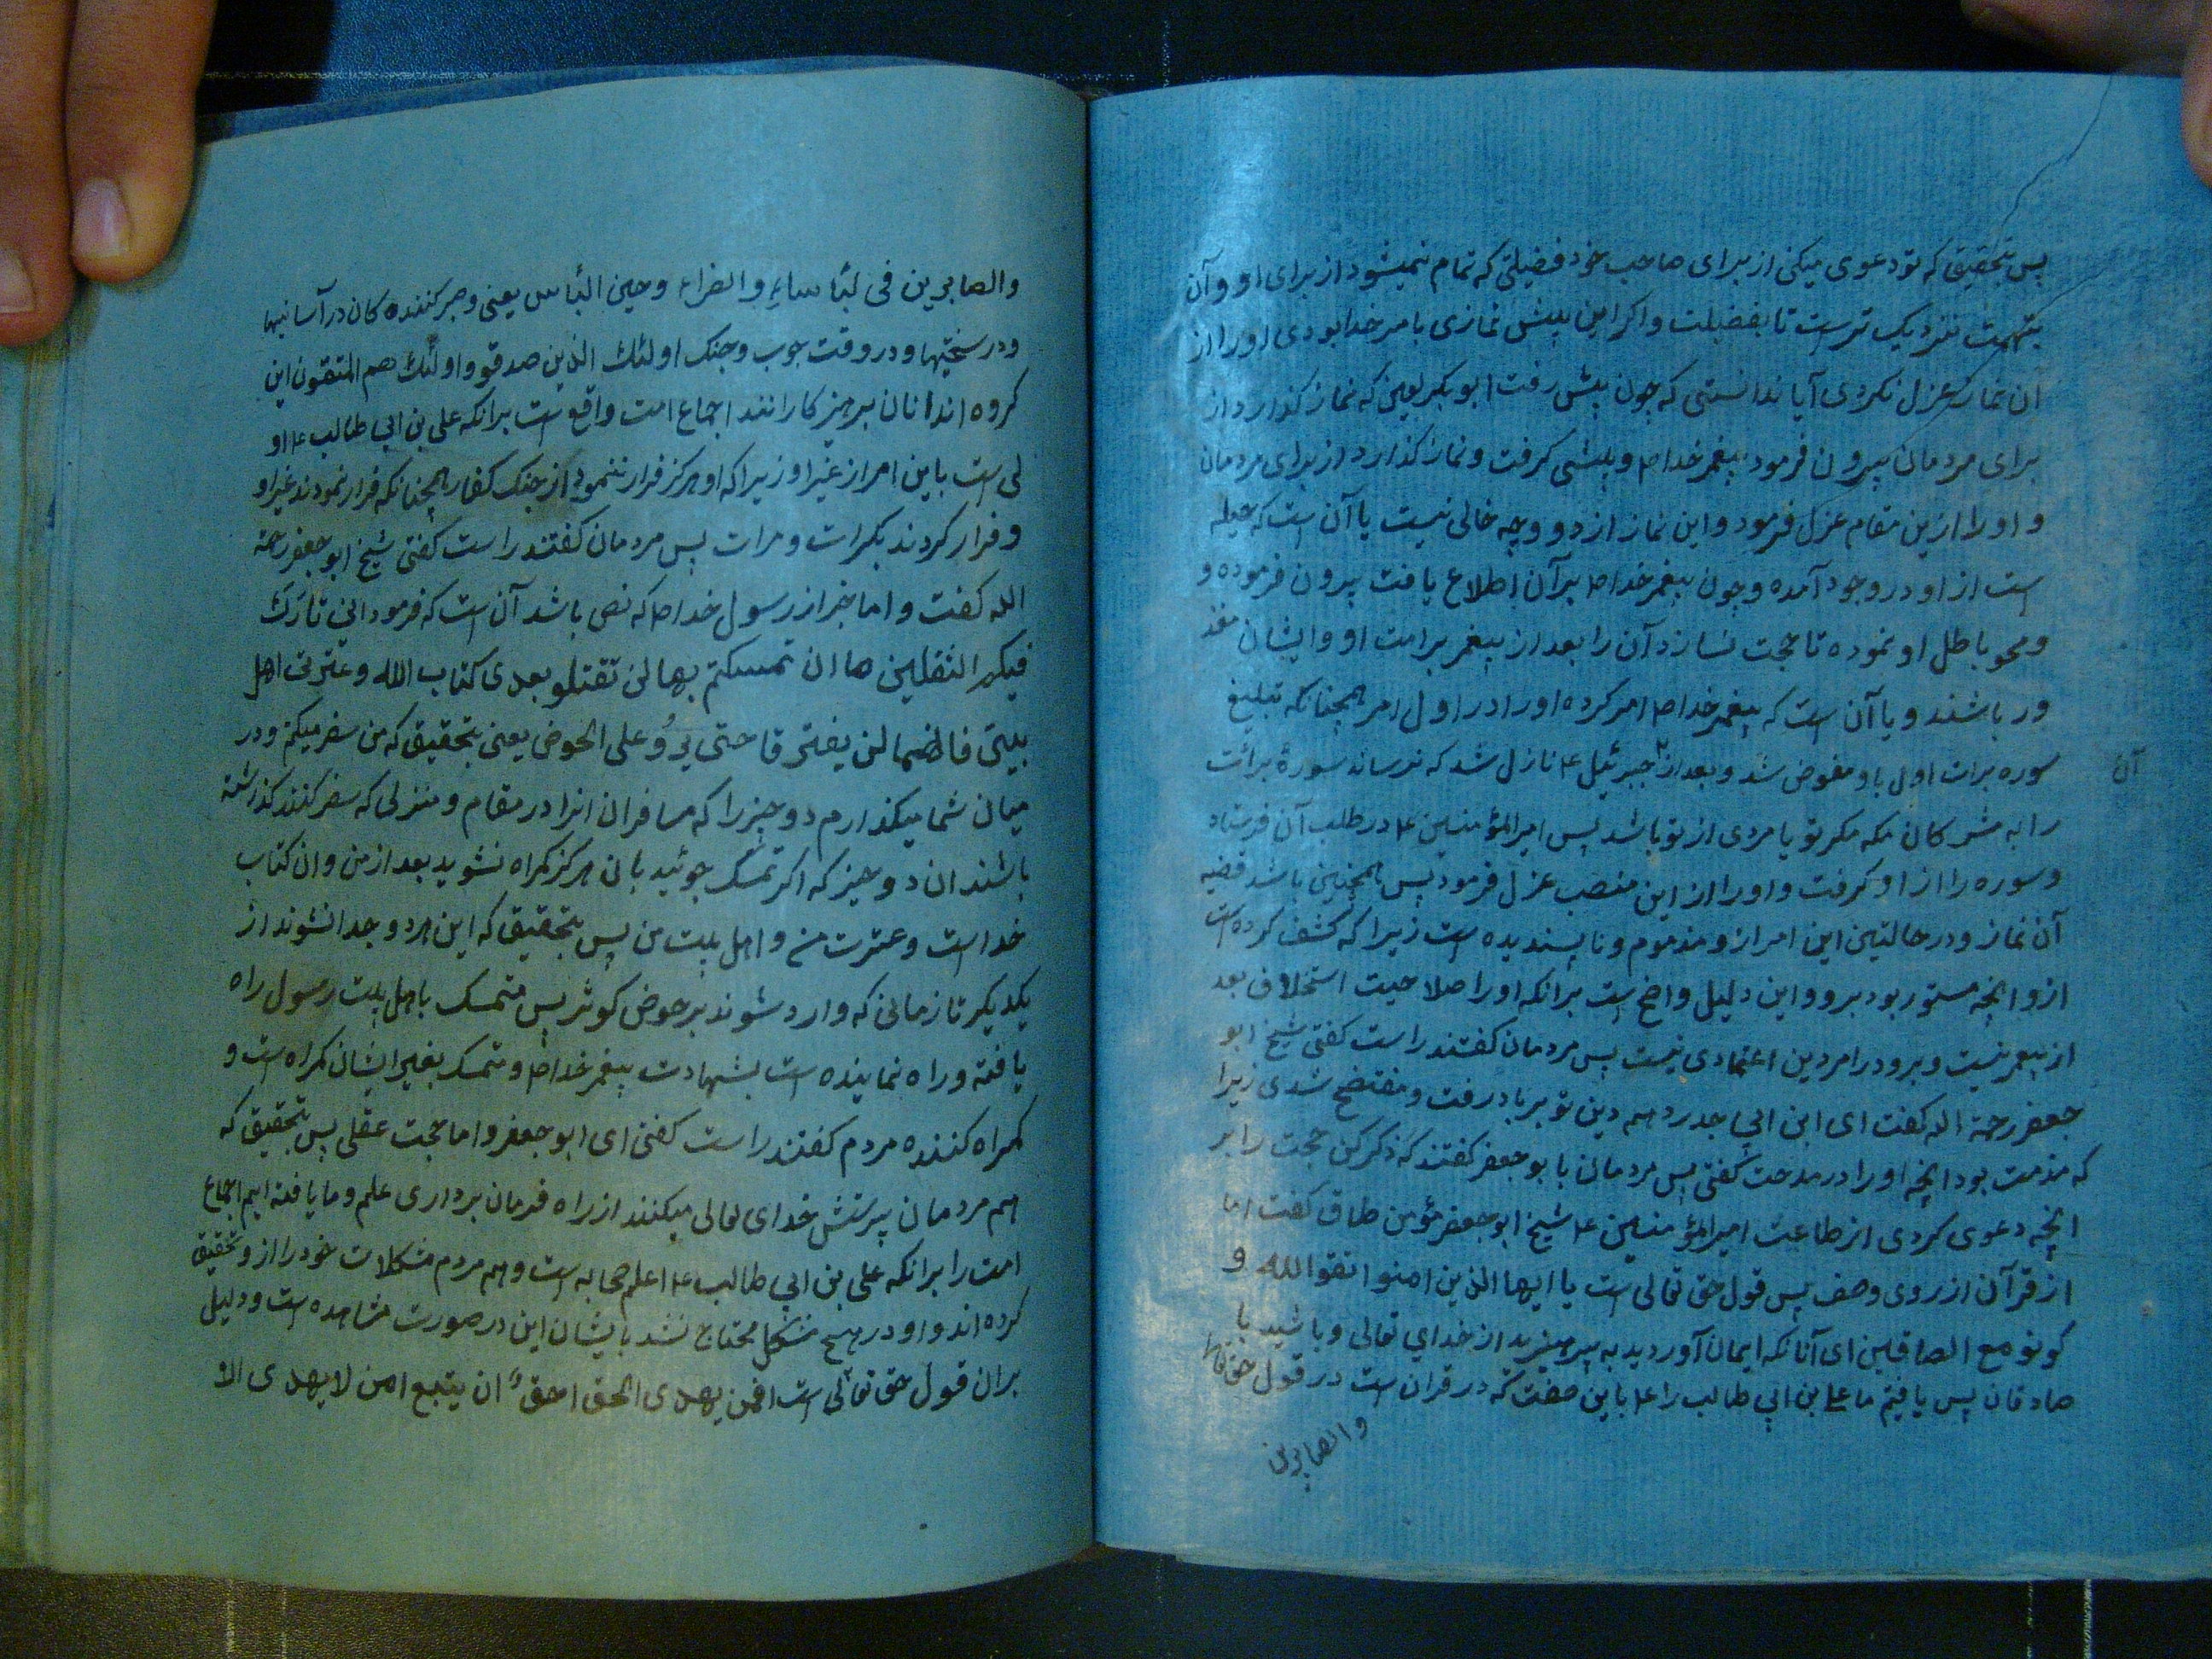 پس بتحقیق که تو دعوی میکنی از برای صاحب خود فضیلتی که تمام نمیشود از برای او و آن
بتهمت نزدیک ترست تا بفضیلت و اکر این پیش نمازی بامر خدا بودی او را از
آن نماز عزل نکردی آیا ندانستی که چون پیش رفت ابو بکر لعین که نماز کذارد از
برای مردمان بیرون فرمود پیغمبر خدا ص و پیشی کرفت و نماز کذارد از برای مردمان
و او را ازین مقام عزل فرمود و این نماز از دو وجه خالی نیست یا آن است که حیله
است از او در وجود آمده و چون پیغمبر خدا ص بر آن اطلاع یافت بیرون فرموده و
و محو باطل او نموده تا حجت نسازد آن را بعد از پیغمبر بر امت او و ایشان معذ
ور باشند و یا آن است که پیغمبر خدا ص امر کرده او را در اول امر همچنانکه تبلیغ
سوره برات اول باو مفوض شد و بعد از آن جبرئیل ع نازل شد که نرساند سورهٔ برائت
را به مشرکان مکه مکر تو یا مردی از تو باشد پس امیر المؤمنین ع در طلب آن فرستاد
و سوره را از او کرفت و او را از این منصب عزل فرمود پس همچنین باشد قضیه
آن نماز و در حالتین این امر از و مذموم و ناپسندیده است زیرا که کشف کرده است
ازو انچه مستور بود برو و این دلیل واضح است برانکه او را صلاحیت استخلاف بعد
از پیغمبر نیست و برو در امر دین اعتمادی نیست پس مردمان کفتند راست کفتی شیخ ابو
جعفر رحمة اله کفت ای ابن ابی حدره همه دین تو بر باد رفت و مفتضح شدی زیرا
که مذمت بود انچه او را در مدحت کفتی پس مردمان با بو جعفر کفتند که ذکر کن حجت را بر
انچه دعوی کردی از طاعت امیر المؤمنین ع شیخ ابو جعفر مؤمن طاق کفت اما
از قرآن از روی وصف پس قول حق تعالی است یا ایها الذین امنوا اتقو الله و
کونو مع الصادقین ای آنانکه ایمان آوردید به پرهیزید از خدای تعالی و باشید با
صادقان پس یافتیم ما علی بن ابی طالب را ع باین صفت که در قران است در قول حق تعالی
والصابرین
والصابرین فی لبأساء والضراء وحین البأس یعنی و صبر کننده کان در آسانیها
و در سختیها و در وقت حرب و جنک اولئك الذین صدقو واولئك هم المتقون این
کروه اند انان پرهیز کارانند اجماع امت واقع است برانکه علی بن ابی طالب ع او
لی است باین امر از غیر او زیرا که او هرکز فرار ننمود از جنک کفار همچنانکه فرار نمودند غیر او
و فرار کردند بکرات و مرات پس مردمان کفتند راست کفتی شیخ ابو جعفر رحمة
الله کفت و اما خبر از رسول خدا ص که نص باشد آن است که فرمود انی تارك
فیکم الثقلین ما ان تمسکتم بهما لن تضلو بعدی کتاب الله وعترتی اهل
بیتی فانهما لن یفترقا حتی یردُ علی الحوض یعنی بتحقیق که من سفر میکنم و در
میان شما میکذارم دو چیز را که مسافران انرا در مقام و منزلی که سفر کنند کذاشته
باشند ان دو چیز که اکر تمسک جوئید بان هرکز کمراه نشوید بعد از من و ان کتاب
خداست و عترت من و اهل بیت من پس بتحقیق که این هر دو جدا نشوند از
یکدیکر تا زمانی که وارد شوند بر حوض کوثر پس متمسک باهل بیت رسول راه
یافته و راه نماینده است بشهادت پیغمبر خدا ص و متمسک بغیر ایشان کمراه است و
کمراه کننده مردم کفتند راست کفتی ای ابو جعفر و اما حجت عقلی پس بتحقیق که
هم مردمان پرستش خدای تعالی میکنند از راه فرمان برداری علم و ما یافته ایم اجماع
امت را برانکه علی بن ابی طالب ع اعلم صحابه است و همه مردم مشکلات خود را از و تحقیق
کرده اند و او در هیچ مشکل محتاج نشد بایشان این در صورت مشاهده است و دلیل
بران قول حق تعالی است افمن یهدی الحق احق ان یتبع امن لا یهدی الا